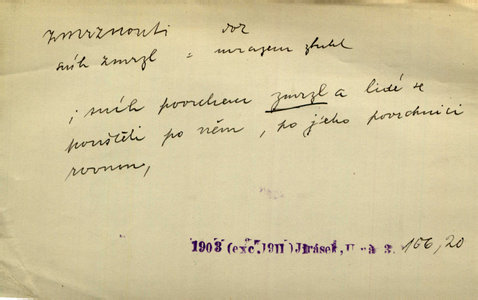 zmrznouti dok
sníh zmrzl = mrazem ztuhl
; sníh povrchem zmrzl a lidé se
pouštěli po něm, po jeho povrchnici
rovnou,
1903 (exc. 1911) Jirásek, U nás 3. 166,20